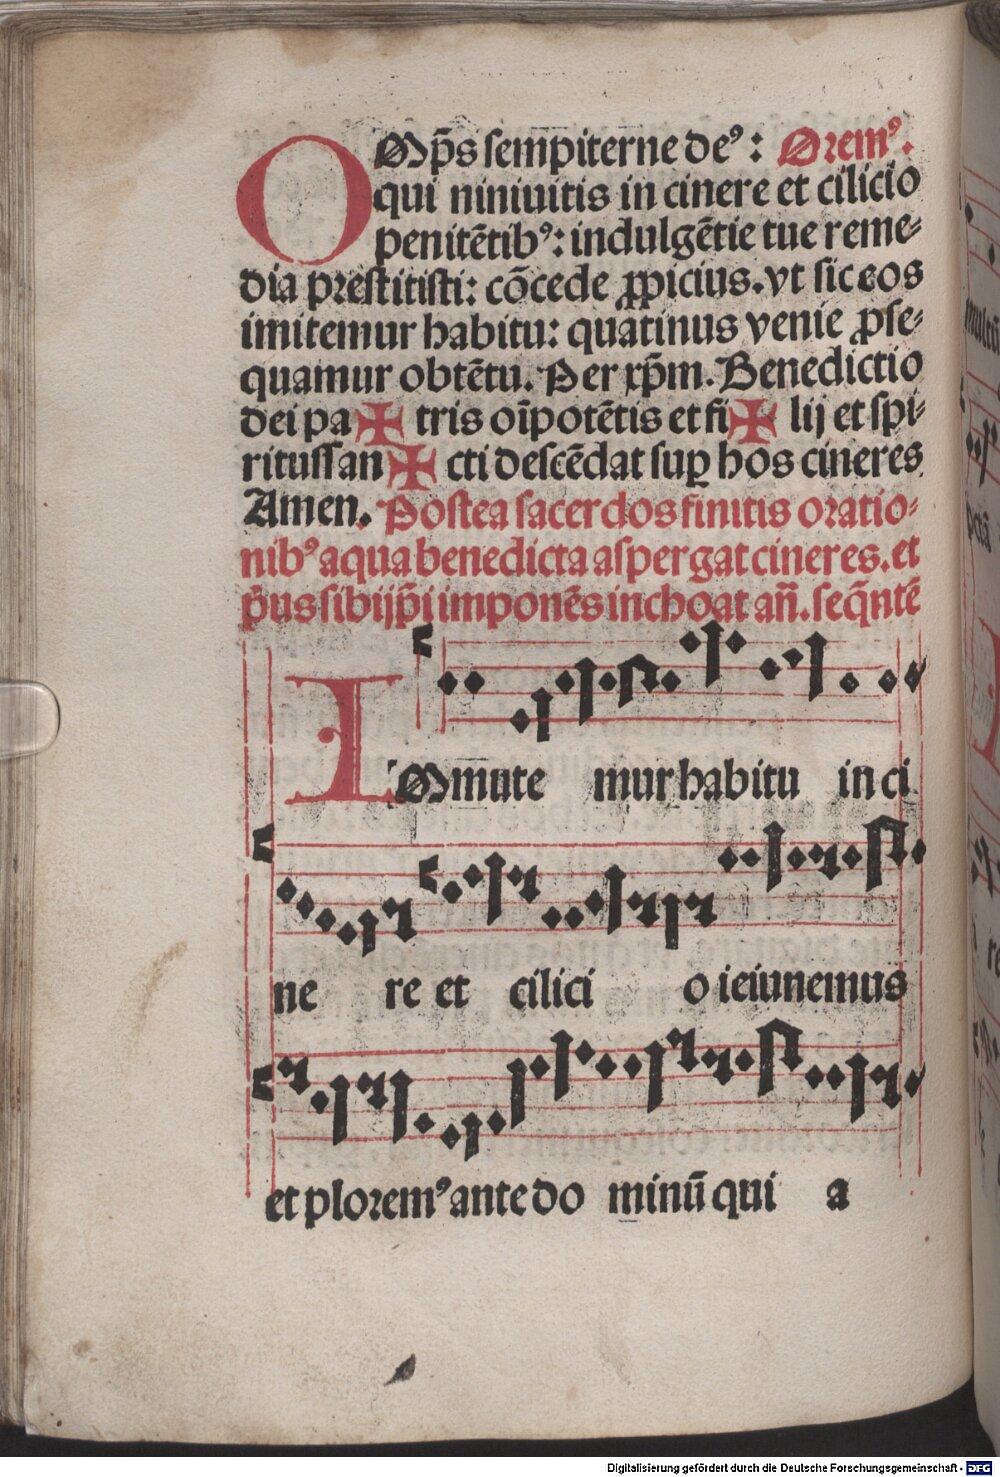 OMp̄s sempiterne deꝰ: Oremꝰ.
qui niniuitis in cinere et cilicio
penitētibꝰ: indulgētie tue reme⸗
dia prestitisti: cōcede ꝓpicius. vt sic eos
imitemur habitu: quatinus venie ꝓse⸗
quamur obtētu. Per xp̄m. Benedictio
dei pa ✠ tris oīpotētis et fi ✠ lij et spi⸗
ritussan ✠ cti descēdat suꝑ hos cineres
Amen. Postea sacerdos finitis oratio⸗
nibꝰ aqua benedicta aspergat cineres. et
p̄us sibijp̄i imponēs inchoat an̄. seq̄ntē
IMmute mur habitu in ci
ne re et cilici o ieiunemus
et ploremꝰ ante do minū qui a
Digitalisierung gefördert durch die Deutsche Forschungsgemeinschaft - DFG